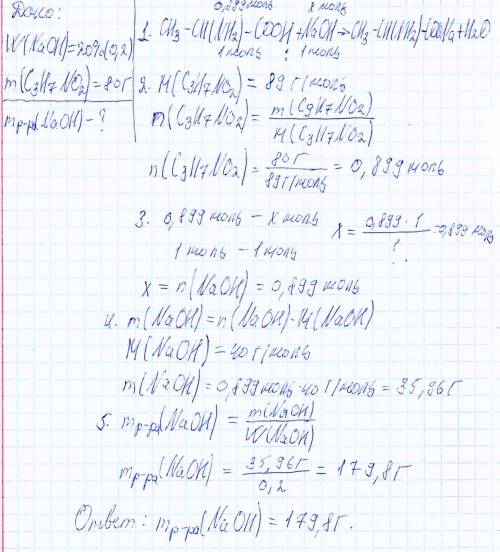 Дано:
W(NaOH)=20%(0,2)
m(C3H7NO2)=80г
mр-ра(NaOH)-?
0,899моль x моль
1. CH3-CH(NH2)-COOH+NaOH→CH3-CH(NH2)-COONa+H2O
1моль : 1моль
2. M(C3H7NO2)=89г/моль
n(C3H7NO2)=m(C3H7NO2)/M(C3H7NO2)
n(C3H7NO2)=80г/89г/моль=0,899моль
3. 0,899моль-x моль
1моль-1моль
x=0,899·1/1=0,899моль
x=n(NaOH)=0,899моль
4. m(NaOH)=n(NaOH)·M(NaOH)
M(NaOH)=40г/моль
m(NaOH)=0,899моль·40г/моль=35,96г
5. mр-ра(NaOH)=m(NaOH)/W(NaOH)
mр-ра(NaOH)=35,96г/0,2=179,8г
Ответ: mр-ра(NaOH)=179,8г.